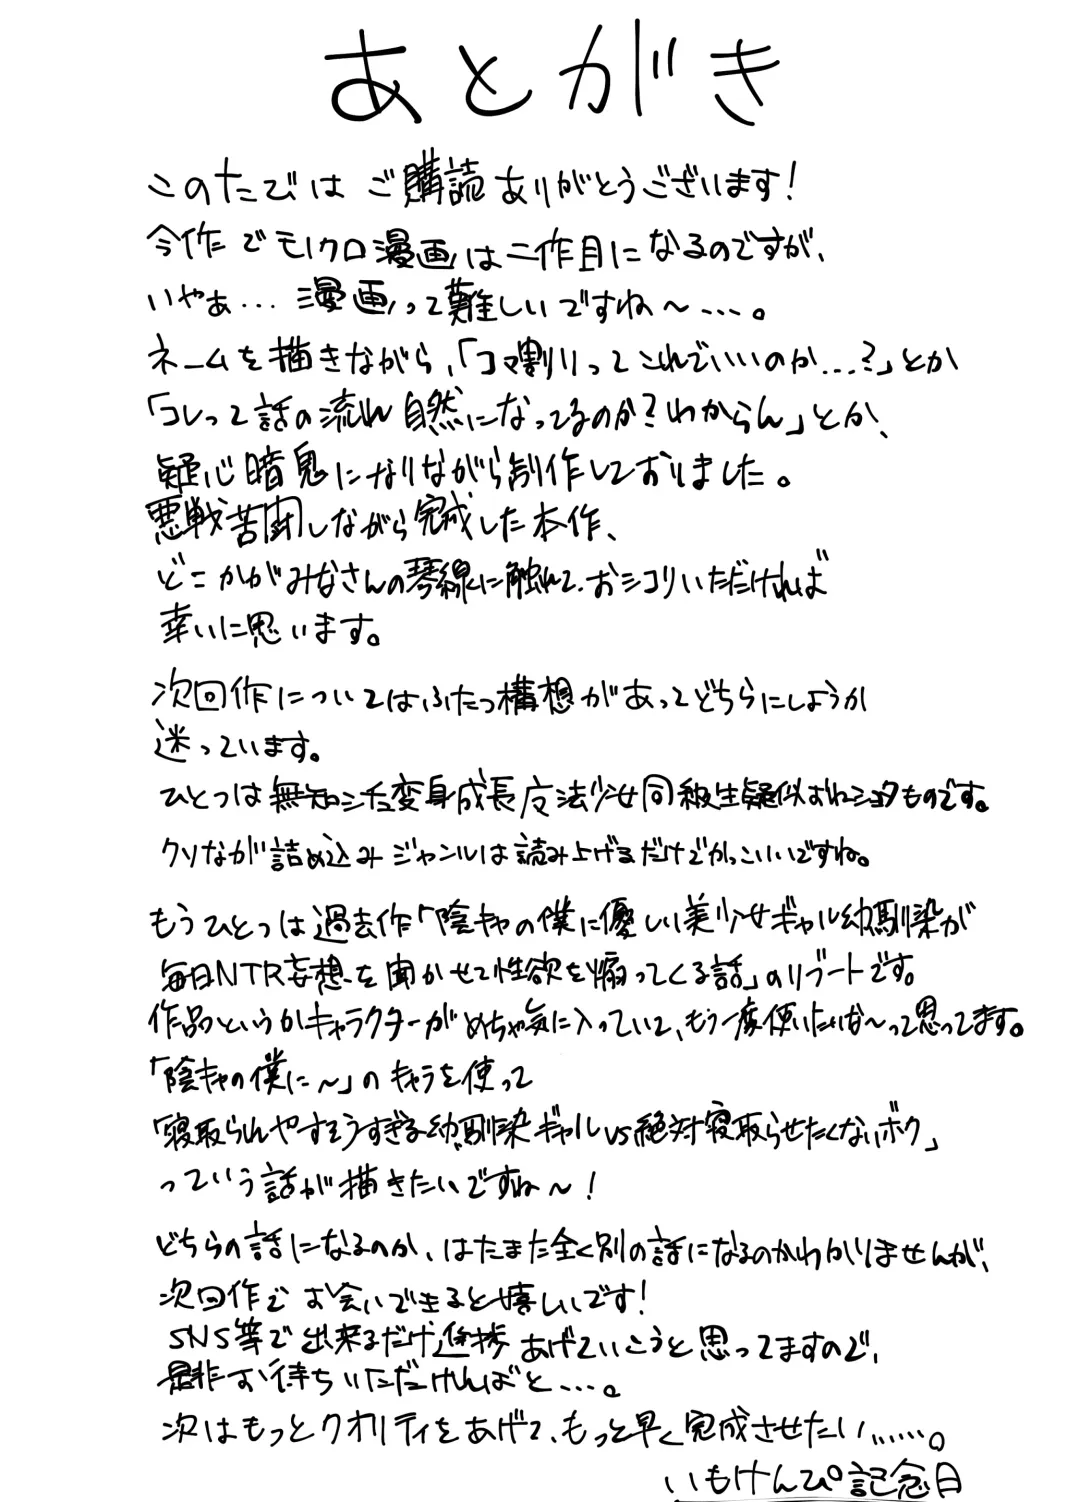 あとがき
このたびはご購読ありがとうございます!
今作でモノクロ漫画は二作目になるのですが、
いやぁ... 漫画って難しいですね〜....。
ネームを描きながら、「コマ割りってこれでいいのか...?」とか
「コレって話の流れ自然になってるのか?わからん」とか、
疑心暗鬼になりながら創作しておりました。
悪戦苦闘しながら完成した本作、
どこかがみなさんの琴線に触れて、おシコりいただければ
幸いに思います。
次回作についてはふたつ構想があってどちらにしようか
迷っています。
ひとつは無知シチュ変身成長魔法少女同級生疑似おねショタものです。
クソなが詰め込みジャンルは読み上げるだけでかっこいいですね。
もうひとつは過去作「陰キャの僕に優しい美少女ギャル幼馴染が
毎日NTR妄想を聞かせて性欲を煽ってくる話」のリブートです。
作品っというかキャラクターがめちゃ気に入っていて、もう一度使いたいな〜って思ってます。
「陰キャの僕に〜」のキャラを使って
「寝取られやすそうすぎる幼馴染ギャルvs絶対寝取らせたくないボク」
っていう話が描きたいですね〜!
どちらの話になるのか、はたまた全く別の話になるのかわかりませんが、
次回作でお会いできると嬉しいです!
SNS等で出来るだけ進捗あげていこうと思ってますので、
是非お待ちいただければと....。
次はもっとクオリティをあげて、もっと早く完成させたい......。
いもけんぴ記念日